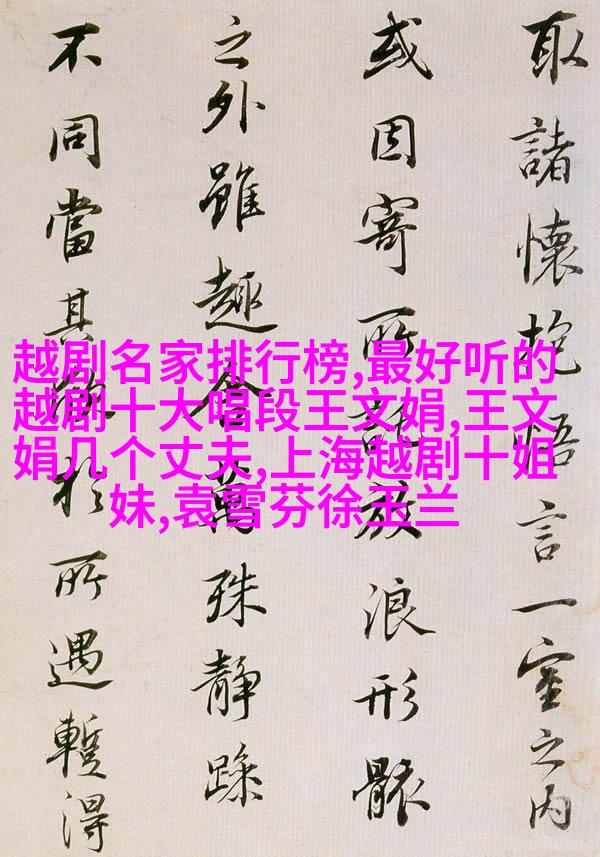 取諸懷抱悟言一室之内
或因寄所託放浪形骸
之外雖趣舍萬殊靜躁
不同當其欣於所遇蹔得
越剧名家排行榜,最好听的
越剧十大唱段王文娟,王文
娟几个丈夫,上海越剧十姐
妹,袁雪芬徐玉兰